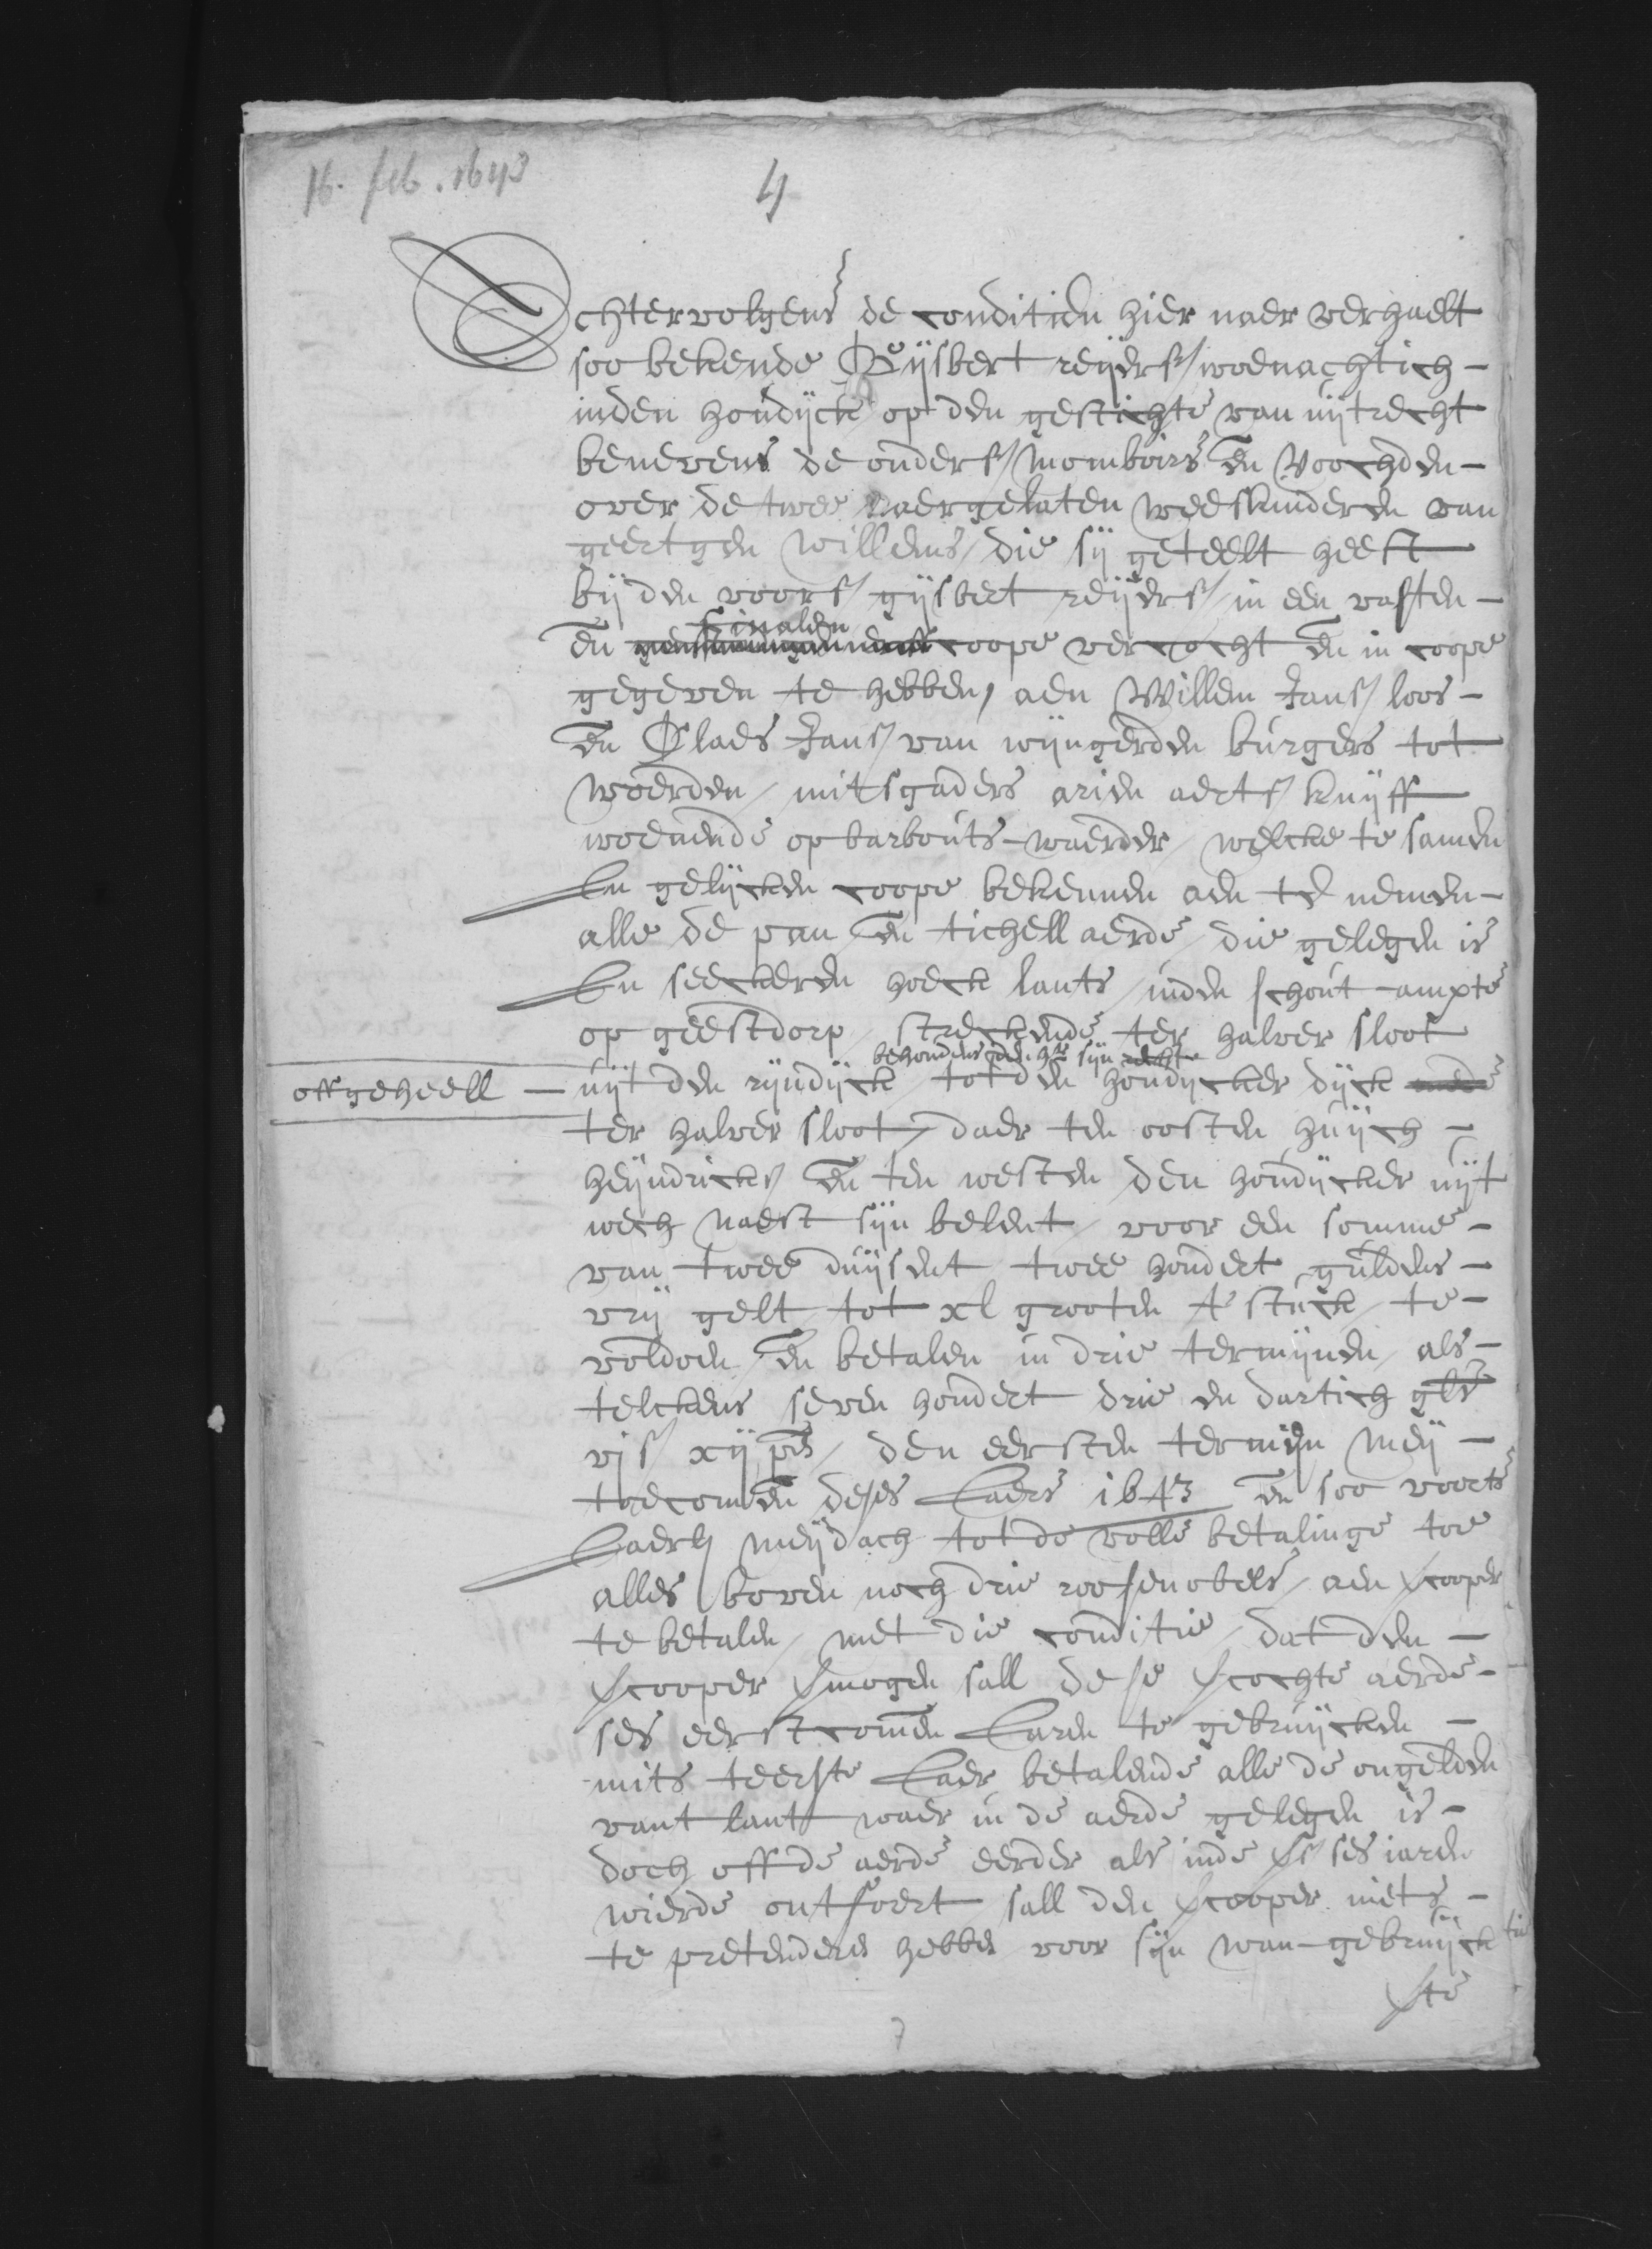 16. feb. 1643
4
Achtervolgens de conditien hier naer verhaelt
soo bekende Gijsbert reijers/ woenachtich -
inden houdijck op den gestichte van uijtrecht
benevens de onders/ momboirs en Voochden -
over de twee naergelaten weeskinderen van
geertgen willems/ die sij geteelt heeft
bij den voors/ gijsbert reijers/ in een vasten -
finalen
en coope vercocht en in coope
gegeven te hebben, aen Willem Jans/ loos -
en Claes Jans/ van wijngerden burgers tot
woerden / mitsgaders arien aerts/ kuijff
woenende op barbouts-waerder / welcke te samen
In gelijcken coope bekennen aen te nemen -
alle de pan en tichell aerde / die gelegen is
In seeckeren hoeck lants / inden schout-ampte
op geestdorp / streckende ter halver sloot
behoudens den hr sijn recht
offgeheell - uijt den rijndijck / tot den houdijcker dijck mede
ter halver sloot / daer ten oosten huijch -
heijndricks/ en ten westen den houdijcker uijt
wech naest sijn belent / voor een somme -
van twee duijsent twee hondert guldens -
vrij gelt / tot xl grooten t' stuck / te -
voldoen en betalen in drie termijnen / als -
telckens seven hondert drie en dartich gls
vis/ xij ps / den eersten termijn meij -
toecomen deses Jaers 1643 en soo voorts
Jaerl meijdach tot de volle betalinge toe
alles boven noch drie roosenobels / aen vcooper
te betalen / met die conditie / dat den -
vcooper vmogen sall dese vcochte aerde -
ses eerstcomen Jaren te gebruijcken -
mits teerste Jaer betalende alle de ongelden
vant lant waer in de aerde gelegen is -
doch off de aerde eerder als inde vs/ ses iaren
wierde ontfoert sall den vcooper niets -
te pretenderen hebben voor sijn wan-gebruijck
vte
7